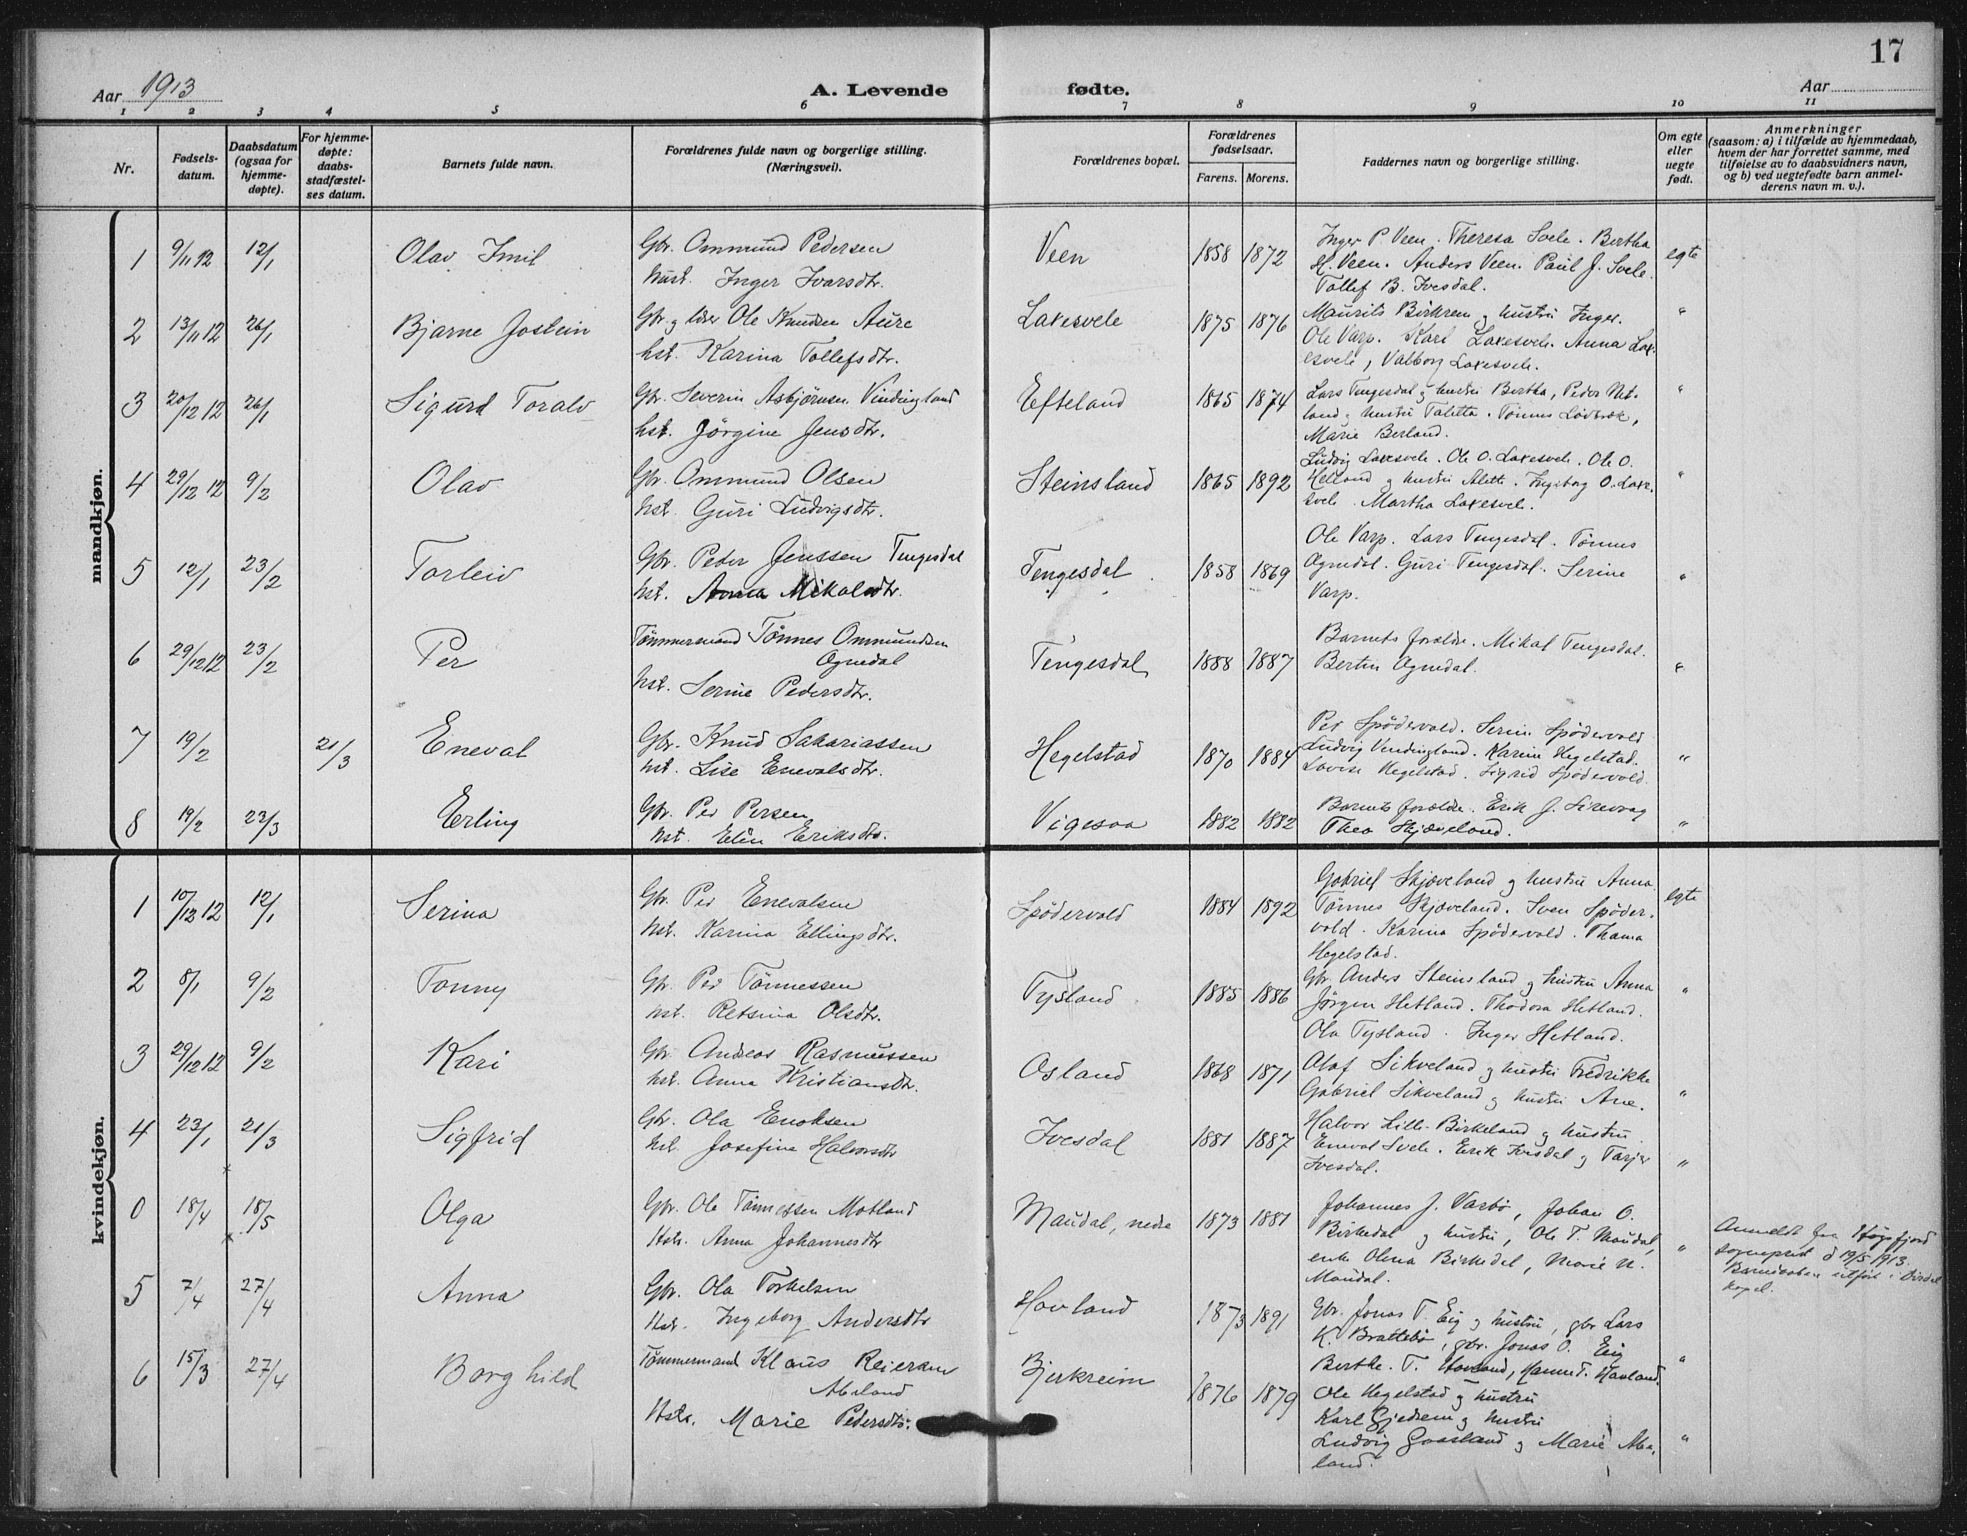 17
Aar 1913
A. Levende
fødte.
Aar
1 2 3 4 5 6 7 8 9 10 11
Nr.
Fødsels-
datum.
Daabsdatum
(ogsaa for
hjemme-
døpte).
For hjemme-
døpte:
daabs-
stadfæstel-
ses datum.
Barnets fulde navn.
Forældrenes fulde navn og borgerlige stilling.
(Næringsvei).
Forældrenes bopæl.
Forældrenes
fødselsaar.
Farens. Morens.
Faddernes navn og borgerlige stilling.
Om egte
eller
uegte
født.
Anmerkninger
(saasom: a) i tilfælde av hjemmedaab,
hvem der har forrettet samme, med
tilføielse av to daabsvidners navn,
og b) ved uegtefødte barn anmel-
derens navn m. v.).
mandkjøn.
1 9/11 12 12/1 Olav Imil
Gbr. Ommund Pedersen
hust. Inger Ivarsdtr.
Veen 1858 1872
Inger P. Veen. Theresa Svele. Bertha
H. Veen. Anders Veen. Paul J. Svele.
Tollef B. Ivesdal.
egte
2 13/11 12 26/1 Bjarne Jostein
Gbr. og lærer Ole Knudsen Aure
hst. Karina Tollefsdtr.
Laksesvele 1875 1876
Maurits Birkrem og hustri Inger.
Ole Varp. Karl Laksesvele. Anna Lak-
sesvele, Valborg Laksesvele.
"
3 20/12 12 26/1 Sigurd Toralv
Gbr. Severin Asbjørnsen Vindingland
hst. Jørgine Jensdtr.
Efteland 1865 1874
Lars Tengesdal og hustri Bertha, Peder Net-
land og hustri Taletta. Tønnes
Marie Berland.
"
4 29/12 12 9/2 Olav
Gbr. Ommund Olsen
hst. Guri Ludvigsdtr.
Steinsland 1865 1892
Ludvig Laksesvele. Ole O. Laksesvele. Ole O.
Helland og hustri Alette. Ingeborg O. Lakse-
svele. Martha Laksesvele.
"
5 12/1 23/2 Torleiv
Gbr. Peter Jenssen Tengesdal
hst. Anna Mikalsdtr.
Tengesdal 1858 1869
Ole Varp. Lars Tengesdal. Tønnes
Ognedal. Guri Tengesdal. Serine
Varp.
"
6 29/12 12 23/2 Per
Tømmermand Tønnes Ommundsen
Ognedal
hst. Serine Pedersdtr.
Tengesdal 1888 1887
Barnets forældre. Mikal Tengesdal.
Bertin Ognedal.
"
7 19/2 21/3 Eneval
Gbr. Knud Sakariassen
hst. Lise Enevalsdtr.
Hegelstad 1870 1884
Per Spødervold. Serin Spødervold
Ludvig Vindingland. Karine Hegelstad.
Lovise Hegelstad. Sigrid Spødervold.
"
8 19/2 23/3 Erling
Gbr. Per Persen
hst. Elin Eriksdtr.
Vigesaa 1882 1882
Barnets forældre. Erik J. Sirevaag
Thea Skjæveland.
"
kvindekjøn.
1 10/12 12 12/1 Serina
Gbr. Per Enevalsen
hst. Karina Ellingsdtr.
Spødervold 1884 1892
Gabriel Skjæveland og hustri Anna
Tønnes Skjæveland. Sven Spøder-
vold. Karina Spødervold. Thama
Hegelstad.
egte
2 8/1 9/2 Tonny
Gbr. Per Tønnessen
hst. Retsina Olsdtr.
Tysland 1885 1886
Gbr. Anders Steinsland og hustri Anna
Jørgen Hetland. Thodora Hetland.
Ola Tysland. Inger Hetland.
"
3 29/12 12 9/2 Kari
Gbr. Andreas Rasmussen
hst. Anna Kristiansdtr.
Osland 1868 1871
Olaf Sikveland og hustri Fredrikke
Gabriel Sikveland og hustri Ane.
"
4 23/1 21/3 Sigfrid
Gbr. Ola Enoksen
hst. Josefine Halvorsdtr
Ivesdal 1881 1887
Halvor Lille-Birkeland og hustri
Eneval Svele. Erik Ivesdal og Tarjer
Ivesdal.
"
0 18/4 18/5 Olga
Gbr. Ole Tønnessen Motland
Hstr. Anna Johannesdtr
Maudal, nedre 1873 1881
Johannes J. Varbø, Johan O.
Birkedal og hustri, Ole T. Maudal,
enke Olena Birkedal, Marie N.
Maudal.
"
Anmeldt fra Høgsfjord
sogneprest d 19/5 1913.
Barnedaaben utført i Dirdal
kapel.
5 7/4 27/4 Anna
Gbr. Ola Torkelsen
Hstr. Ingeborg Andersdtr
Hovland 1873 1891
Gbr. Jonas T. Eig og hustri, gbr Lars
K. Brattebø, gbr. Jonas O. Eig
Berthe. T. Hovland, Hanne T. Hovland.
"
6 15/3 27/4 Borghild
Tømmermand Klaus Reiersen
Abeland
Hstr. Marie Pedersdtr.
Bjerkreim 1876 1879
Ole Hegelstad og hustri
Karl Gjedrem og hustri
Ludvig Gaasland og Marie Abe-
land.
"